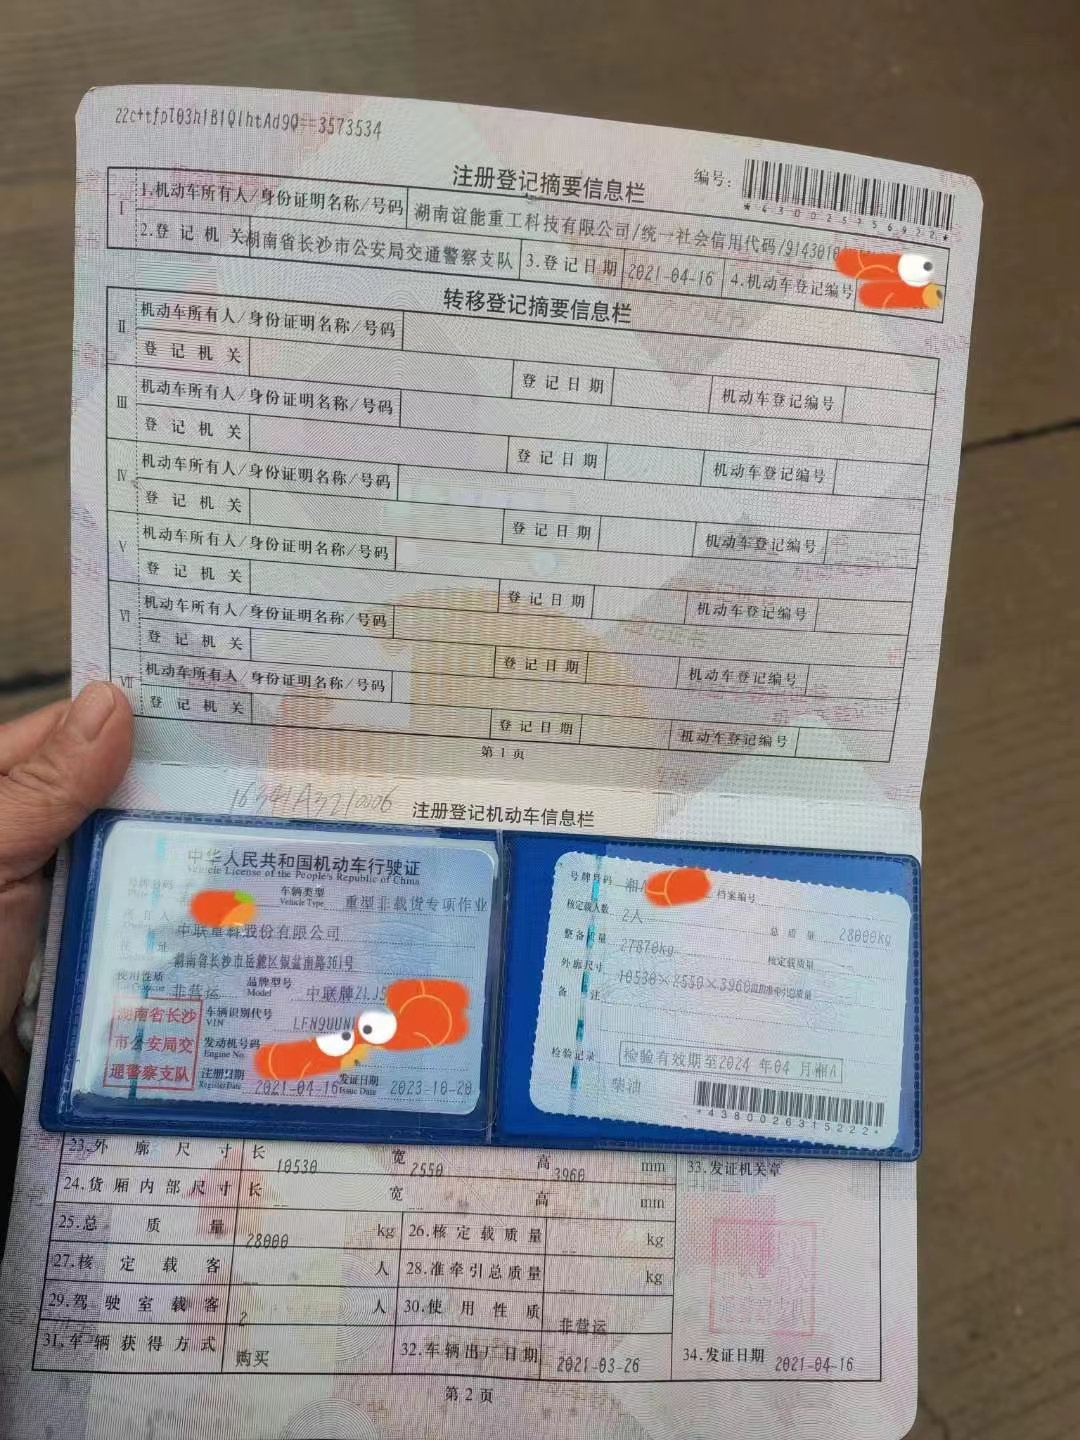 22c+tfpT03h1B1QlhtAd9Q==3573534
注册登记摘要信息栏
编号:
*430025756922*
I
1.机动车所有人/身份证明名称/号码
湖南谊能重工科技有限公司/统一社会信用代码/9143010
2.登记机关
湖南省长沙市公安局交通警察支队
3.登记日期
2021-04-16
4.机动车登记编号
转移登记摘要信息栏
II
机动车所有人/身份证明名称/号码
登记机关
登记日期
机动车登记编号
III
机动车所有人/身份证明名称/号码
登记机关
登记日期
机动车登记编号
IV
机动车所有人/身份证明名称/号码
登记机关
登记日期
机动车登记编号
V
机动车所有人/身份证明名称/号码
登记机关
登记日期
机动车登记编号
VI
机动车所有人/身份证明名称/号码
登记机关
登记日期
机动车登记编号
VII
机动车所有人/身份证明名称/号码
登记机关
登记日期
机动车登记编号
第1页
注册登记机动车信息栏
中华人民共和国机动车行驶证
Vehicle License of the People's Republic of China
号牌号码
车辆类型
Vehicle Type
重型非载货专项作业
所有人
中联重科股份有限公司
住址
湖南省长沙市岳麓区银盆南路361号
使用性质
Use Character
非营运
品牌型号
Model
中联牌ZLJ5
湖南省长沙
市公安局交
通警察支队
车辆识别代号
VIN
LFN9UUN
发动机号码
Engine No.
注册日期
Register Date
2021-04-16
发证日期
Issue Date
2023-10-20
号牌号码
湘
档案编号
核定载人数
2人
总质量
28000kg
整备质量
27870kg
核定载质量
外廓尺寸
10530×2550×3960
准牵引总质量
备注
检验记录
检验有效期至2024年04月湘A
柴油
*4380026315222*
23.外廓尺寸
长 10530 宽 2550 高 3960 mm
24.货厢内部尺寸
长 宽 高 mm
25.总质量
28000 kg
26.核定载质量
-- kg
27.核定载客
-- 人
28.准牵引总质量
-- kg
29.驾驶室载客
2 人
30.使用性质
非营运
31.车辆获得方式
购买
32.车辆出厂日期
2021-03-26
33.发证机关章
34.发证日期
2021-04-16
第2页